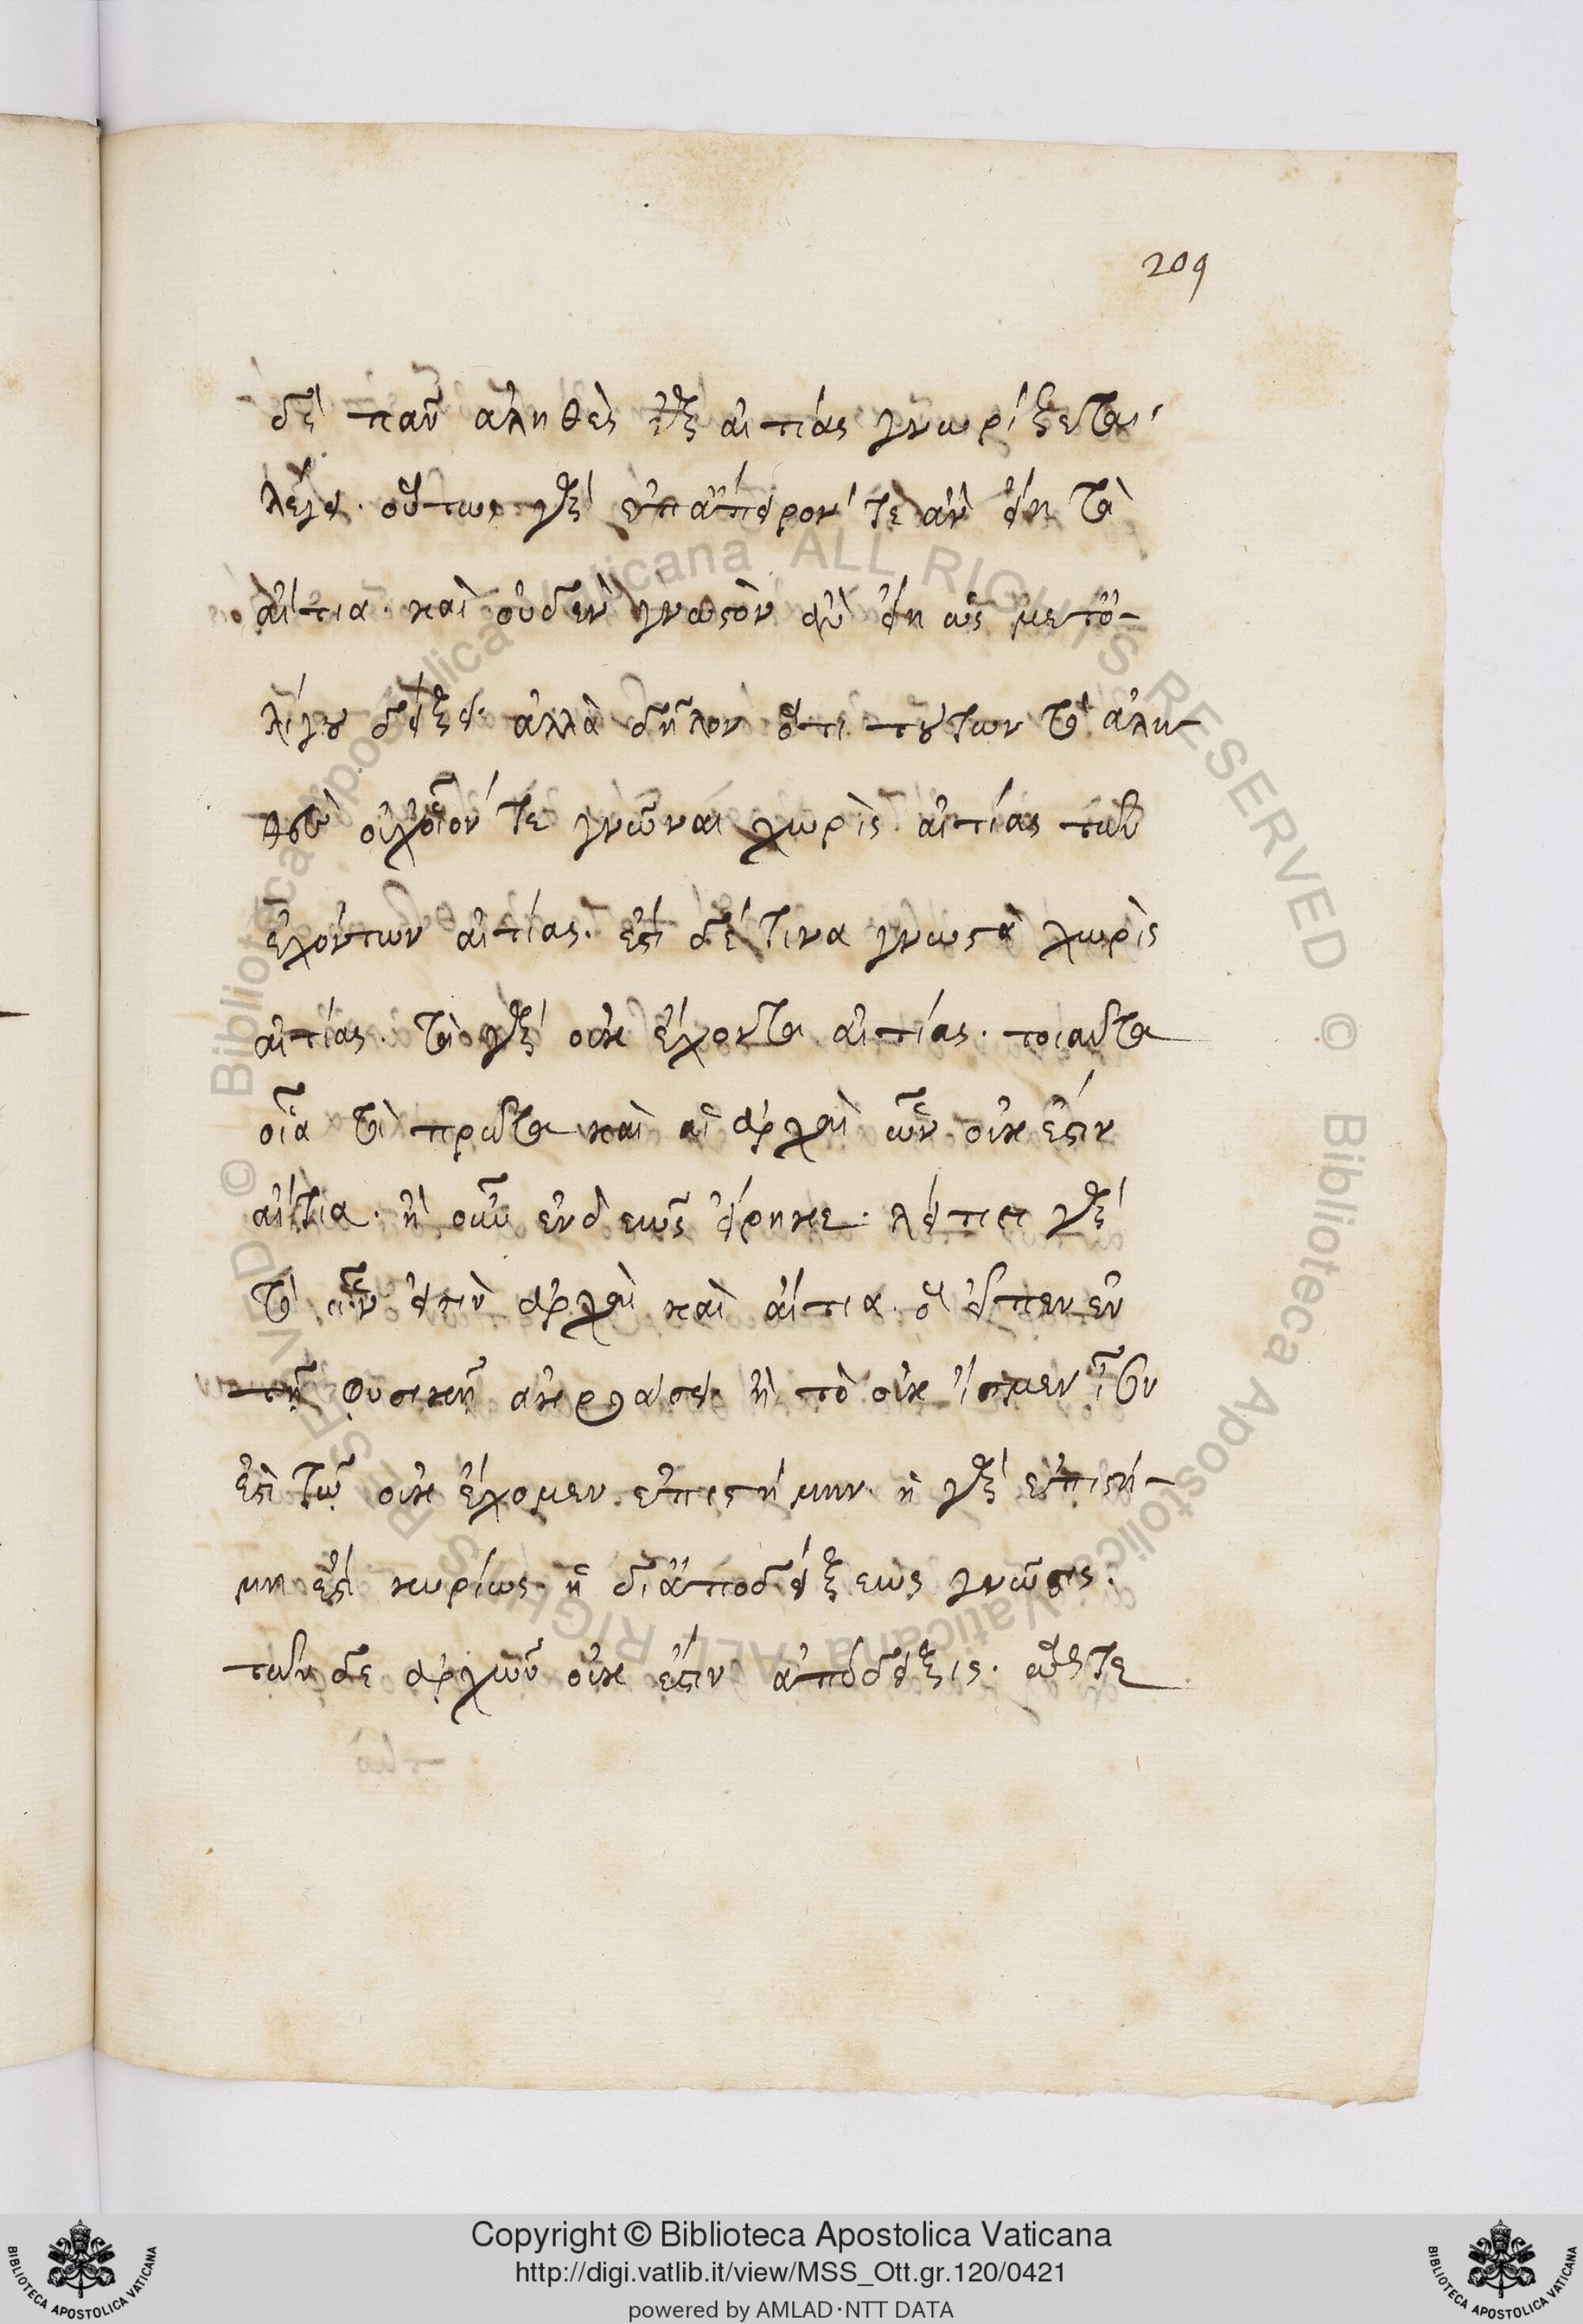 209
δὲ πᾶν ἀληθὲς ἐξ αἰτίας γνωρίζεσθαι
λέγει. οὕτως γὰρ ἐπάπειρόν τε ἂν εἴη τὰ
αἴτια. καὶ οὐδὲν γνωστὸν ἂν εἴη ὡς μετ' ὀ-
λίγου δείξει. ἀλλὰ δῆλον ὅτι τούτων τὸ ἀλη-
θὲς οὐχ οἷόν τε γνῶναι χωρὶς αἰτίας τῶν
ἐχόντων αἰτίας. ἐστὶ δέ τινα γνωστὰ χωρὶς
αἰτίας. τὰ γὰρ οὐκ ἔχοντα αἰτίας. τοιαῦτα
οἷα τὰ πρῶτα καὶ αἱ ἀρχαὶ ὧν οὐκ ἔστιν
αἴτια. ἢ οὖν ἐνδεῶς εἴρηκε. λείπει γὰρ
τὸ ὧν εἰσὶν ἀρχαὶ καὶ αἴτια. ὃ εἶπεν ἐν
τῇ φυσικῇ ἀκροάσει. ἢ τὸ οὐκ ἴσμεν ἴσον
ἐστὶ τῷ οὐκ ἔχομεν ἐπιστήμην. ἡ γὰρ ἐπιστή-
μη ἐστὶ κυρίως ἡ δι' ἀποδείξεως γνῶσις.
τῶν δὲ ἀρχῶν οὐκ ἔστιν ἀπόδειξις. ὥστε
Copyright © Biblioteca Apostolica Vaticana
http://digi.vatlib.it/view/MSS_Ott.gr.120/0421
powered by AMLAD·NTT DATA
BIBLIOTECA APOSTOLICA VATICANA
BIBLIOTECA APOSTOLICA VATICANA
© Biblioteca Apostolica Vaticana ALL RIGHTS RESERVED © Biblioteca Apostolica Vaticana ALL RIGHTS RESERVED